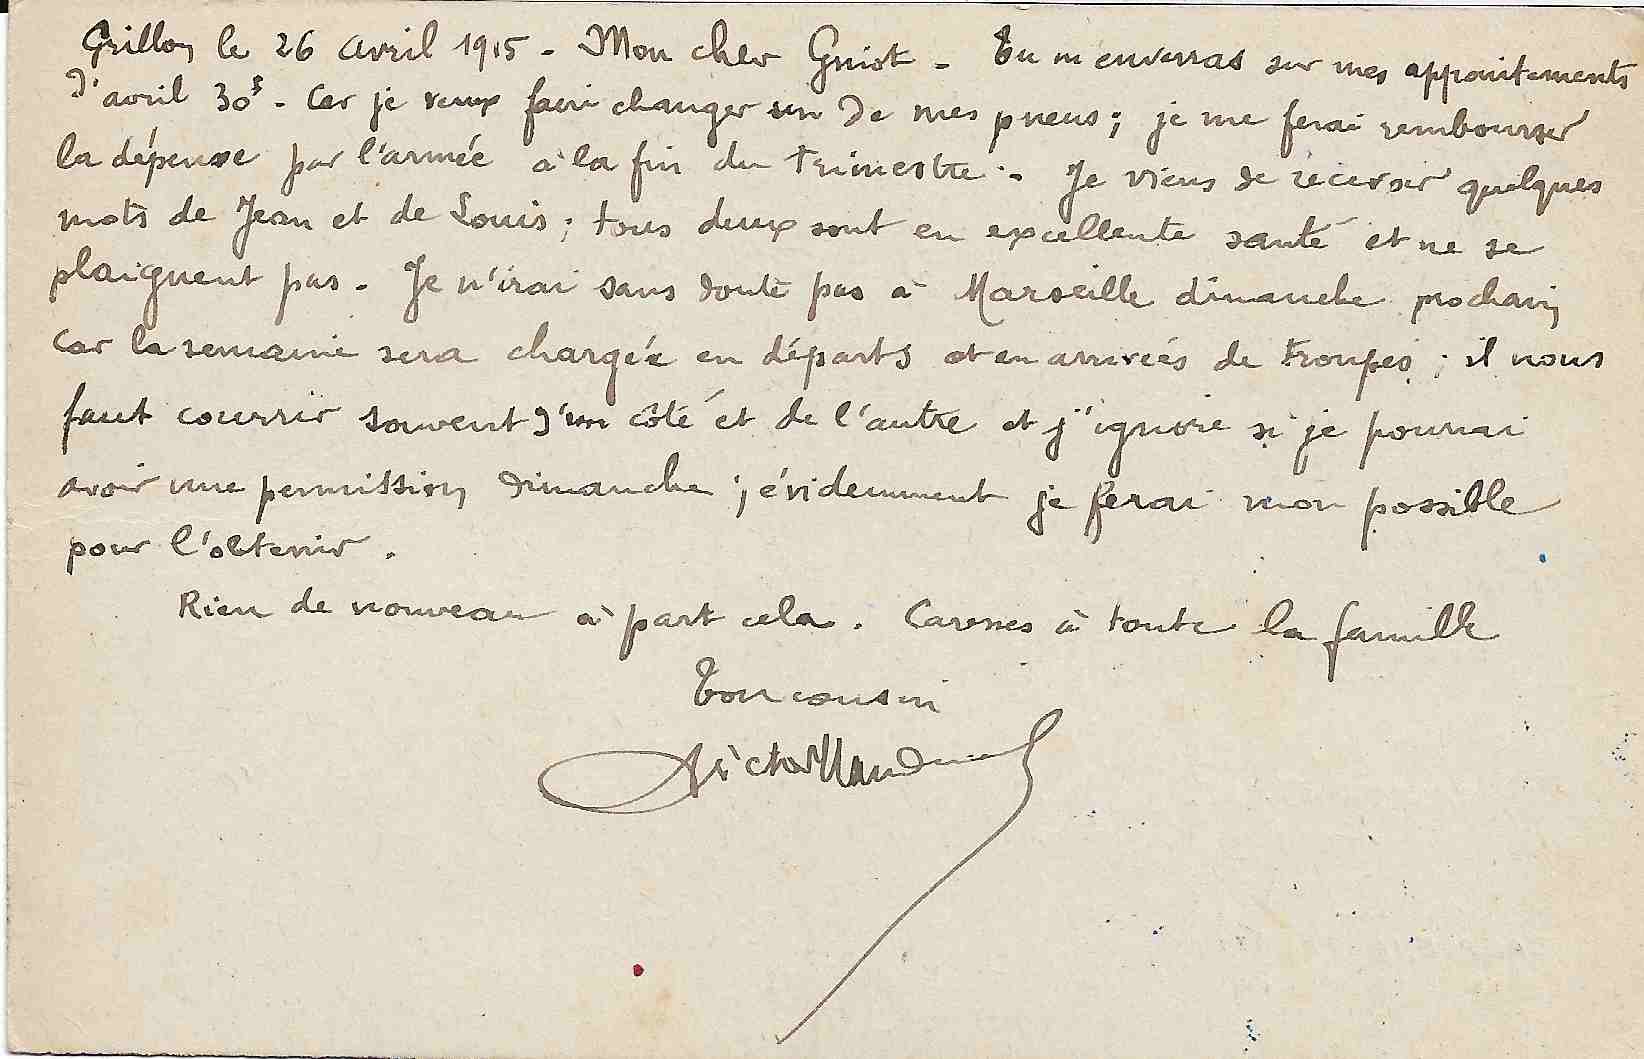 Grillon le 26 avril 1915 - Mon cher Guiot - Tu m'enverras sur mes appointements
d'avril 30f - Car je veux faire changer un de mes pneus ; je me ferai rembourser
la dépense par l'armée à la fin du trimestre - Je viens de recevoir quelques
mots de Jean et de Louis ; tous deux sont en excellente santé et ne se
plaignent pas - Je n'irai sans doute pas à Marseille dimanche prochain
car la semaine sera chargée en départs et en arrivées de troupes ; il nous
faut courrir souvent d'un côté et de l'autre et j'ignore si je pourrai
avoir une permission dimanche ; évidemment je ferai mon possible
pour l'obtenir .
Rien de nouveau à part cela . Caresses à toute la famille
Ton cousin